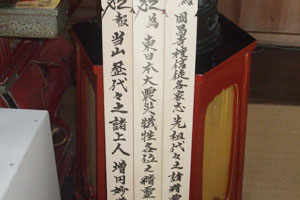 為 国昌寺檀信徒各家志先祖代々之諸精霊
為 東日本大震災犠牲各位之精霊
報 当山歴代々之諸上人増円妙道